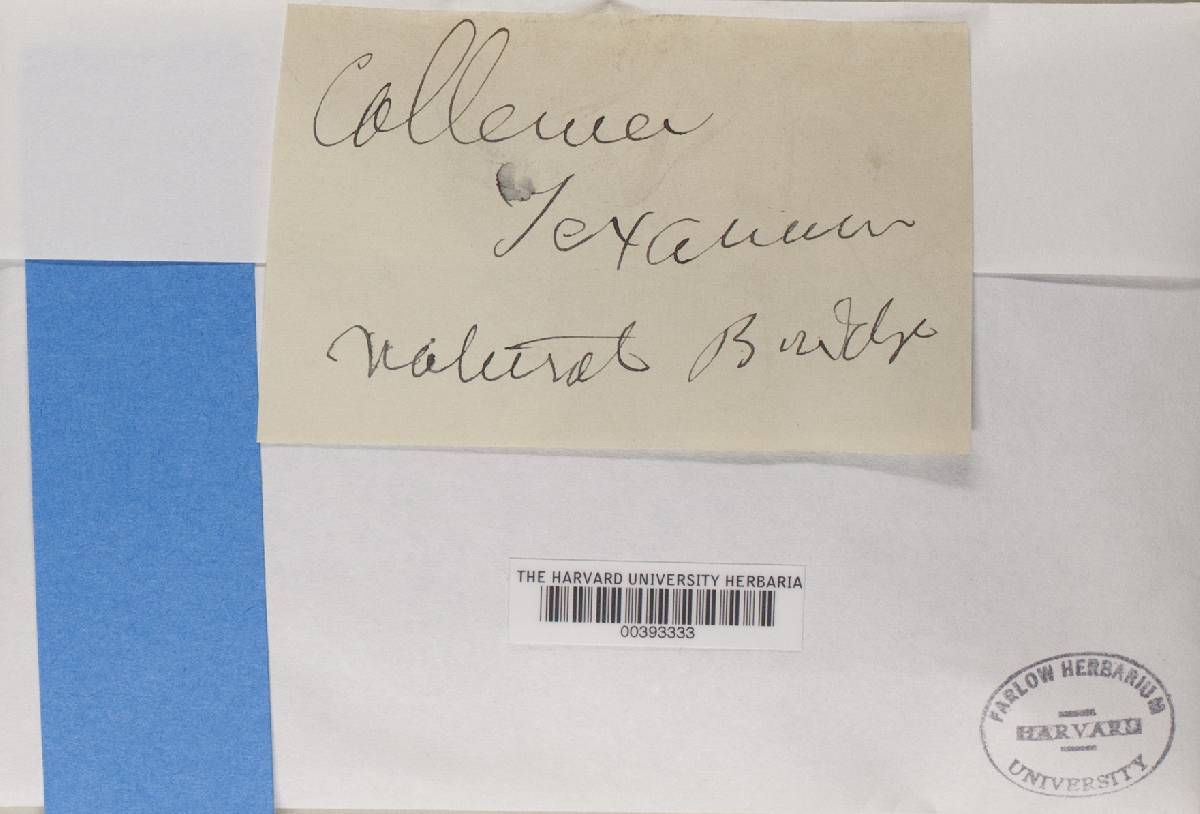 Collema
Texanum
Natural Bridge
THE HARVARD UNIVERSITY HERBARIA
00393333
FARLOW HERBARIUM
HARVARD
UNIVERSITY